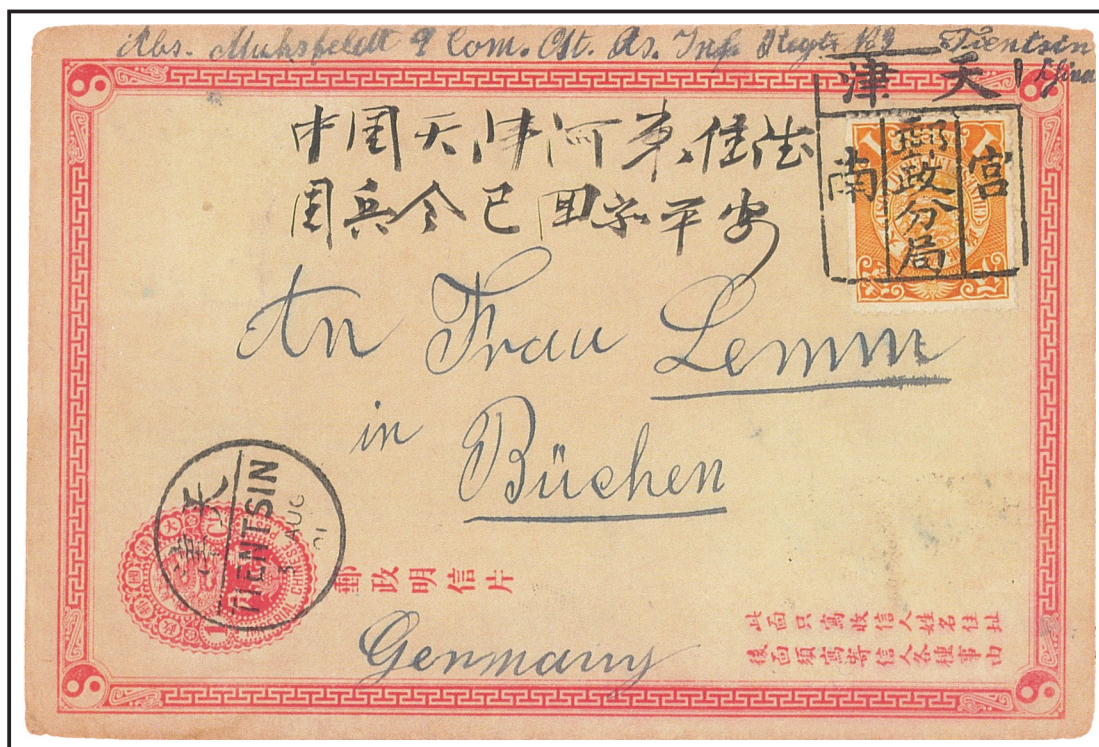 Abs. Muhsfeldt 9 Com. Ost. As. Inf. Regts. Tientsin
China
天津
宮南
郵政分局
中国天津河東住德
国兵今已回家平安
An Frau Lemm
in
Büchen
天津
TIENTSIN
3 AUG 01
郵政明信片
Germany
此面只寫收信人姓名住址
後面須寫寄信人各種事由